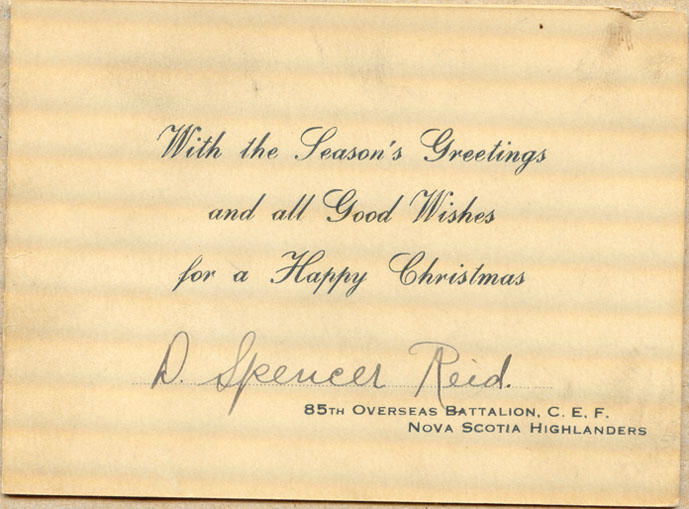 With the Season's Greetings
and all Good Wishes
for a Happy Christmas
D. Spencer Reid.
85TH OVERSEAS BATTALION, C. E. F.
NOVA SCOTIA HIGHLANDERS